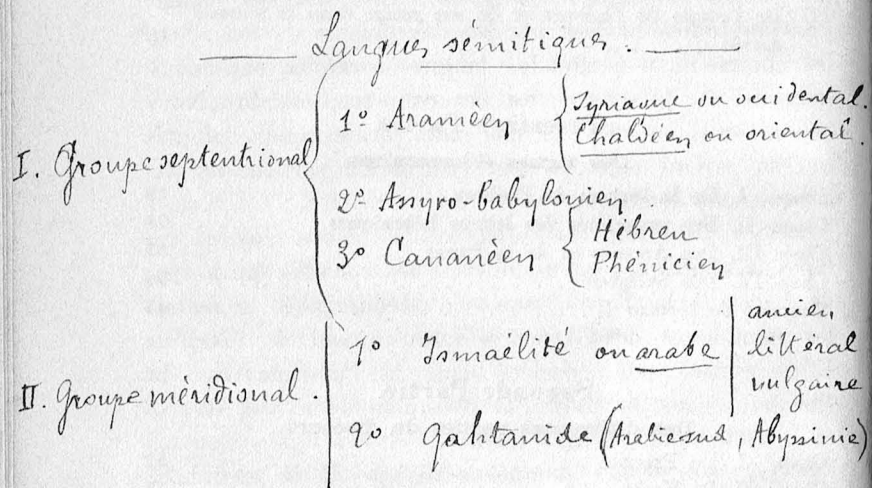 Langues sémitiques.
I. Groupe septentrional
1º Araméen
Syriaque ou occidental.
Chaldéen ou oriental.
2º Assyro-babylonien
3º Cananéen
Hébreu
Phénicien
II. Groupe méridional.
1º Ismaelité ou arabe
ancien,
littéral
vulgaire
2º Qahtanide (Arabie sud, Abyssinie)